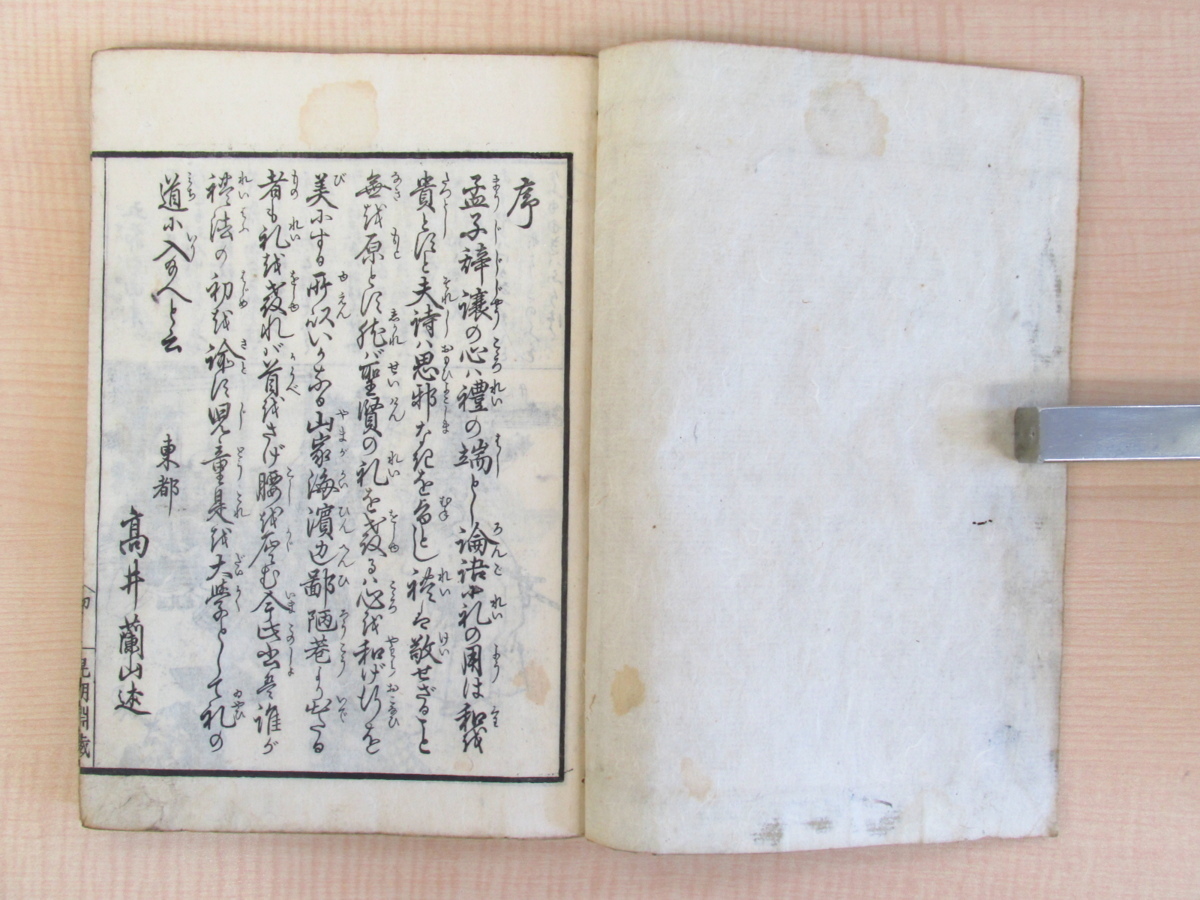 序
孟子辞譲の心ハ禮の端とし論語に礼の用は和を
貴としと夫詩ハ思邪なきを旨とし礼は敬せざること
無を原とす然ば聖賢の礼を教るハ心を和げ行を
美にする所以いかなる山家海濱边鄙陋巷より出たる
者も礼を教れバ首をさげ腰を屈む今此書は誰が
禮法の初を諭す児童是を大学として礼の
道に入るべしと云
東都 高井蘭山述